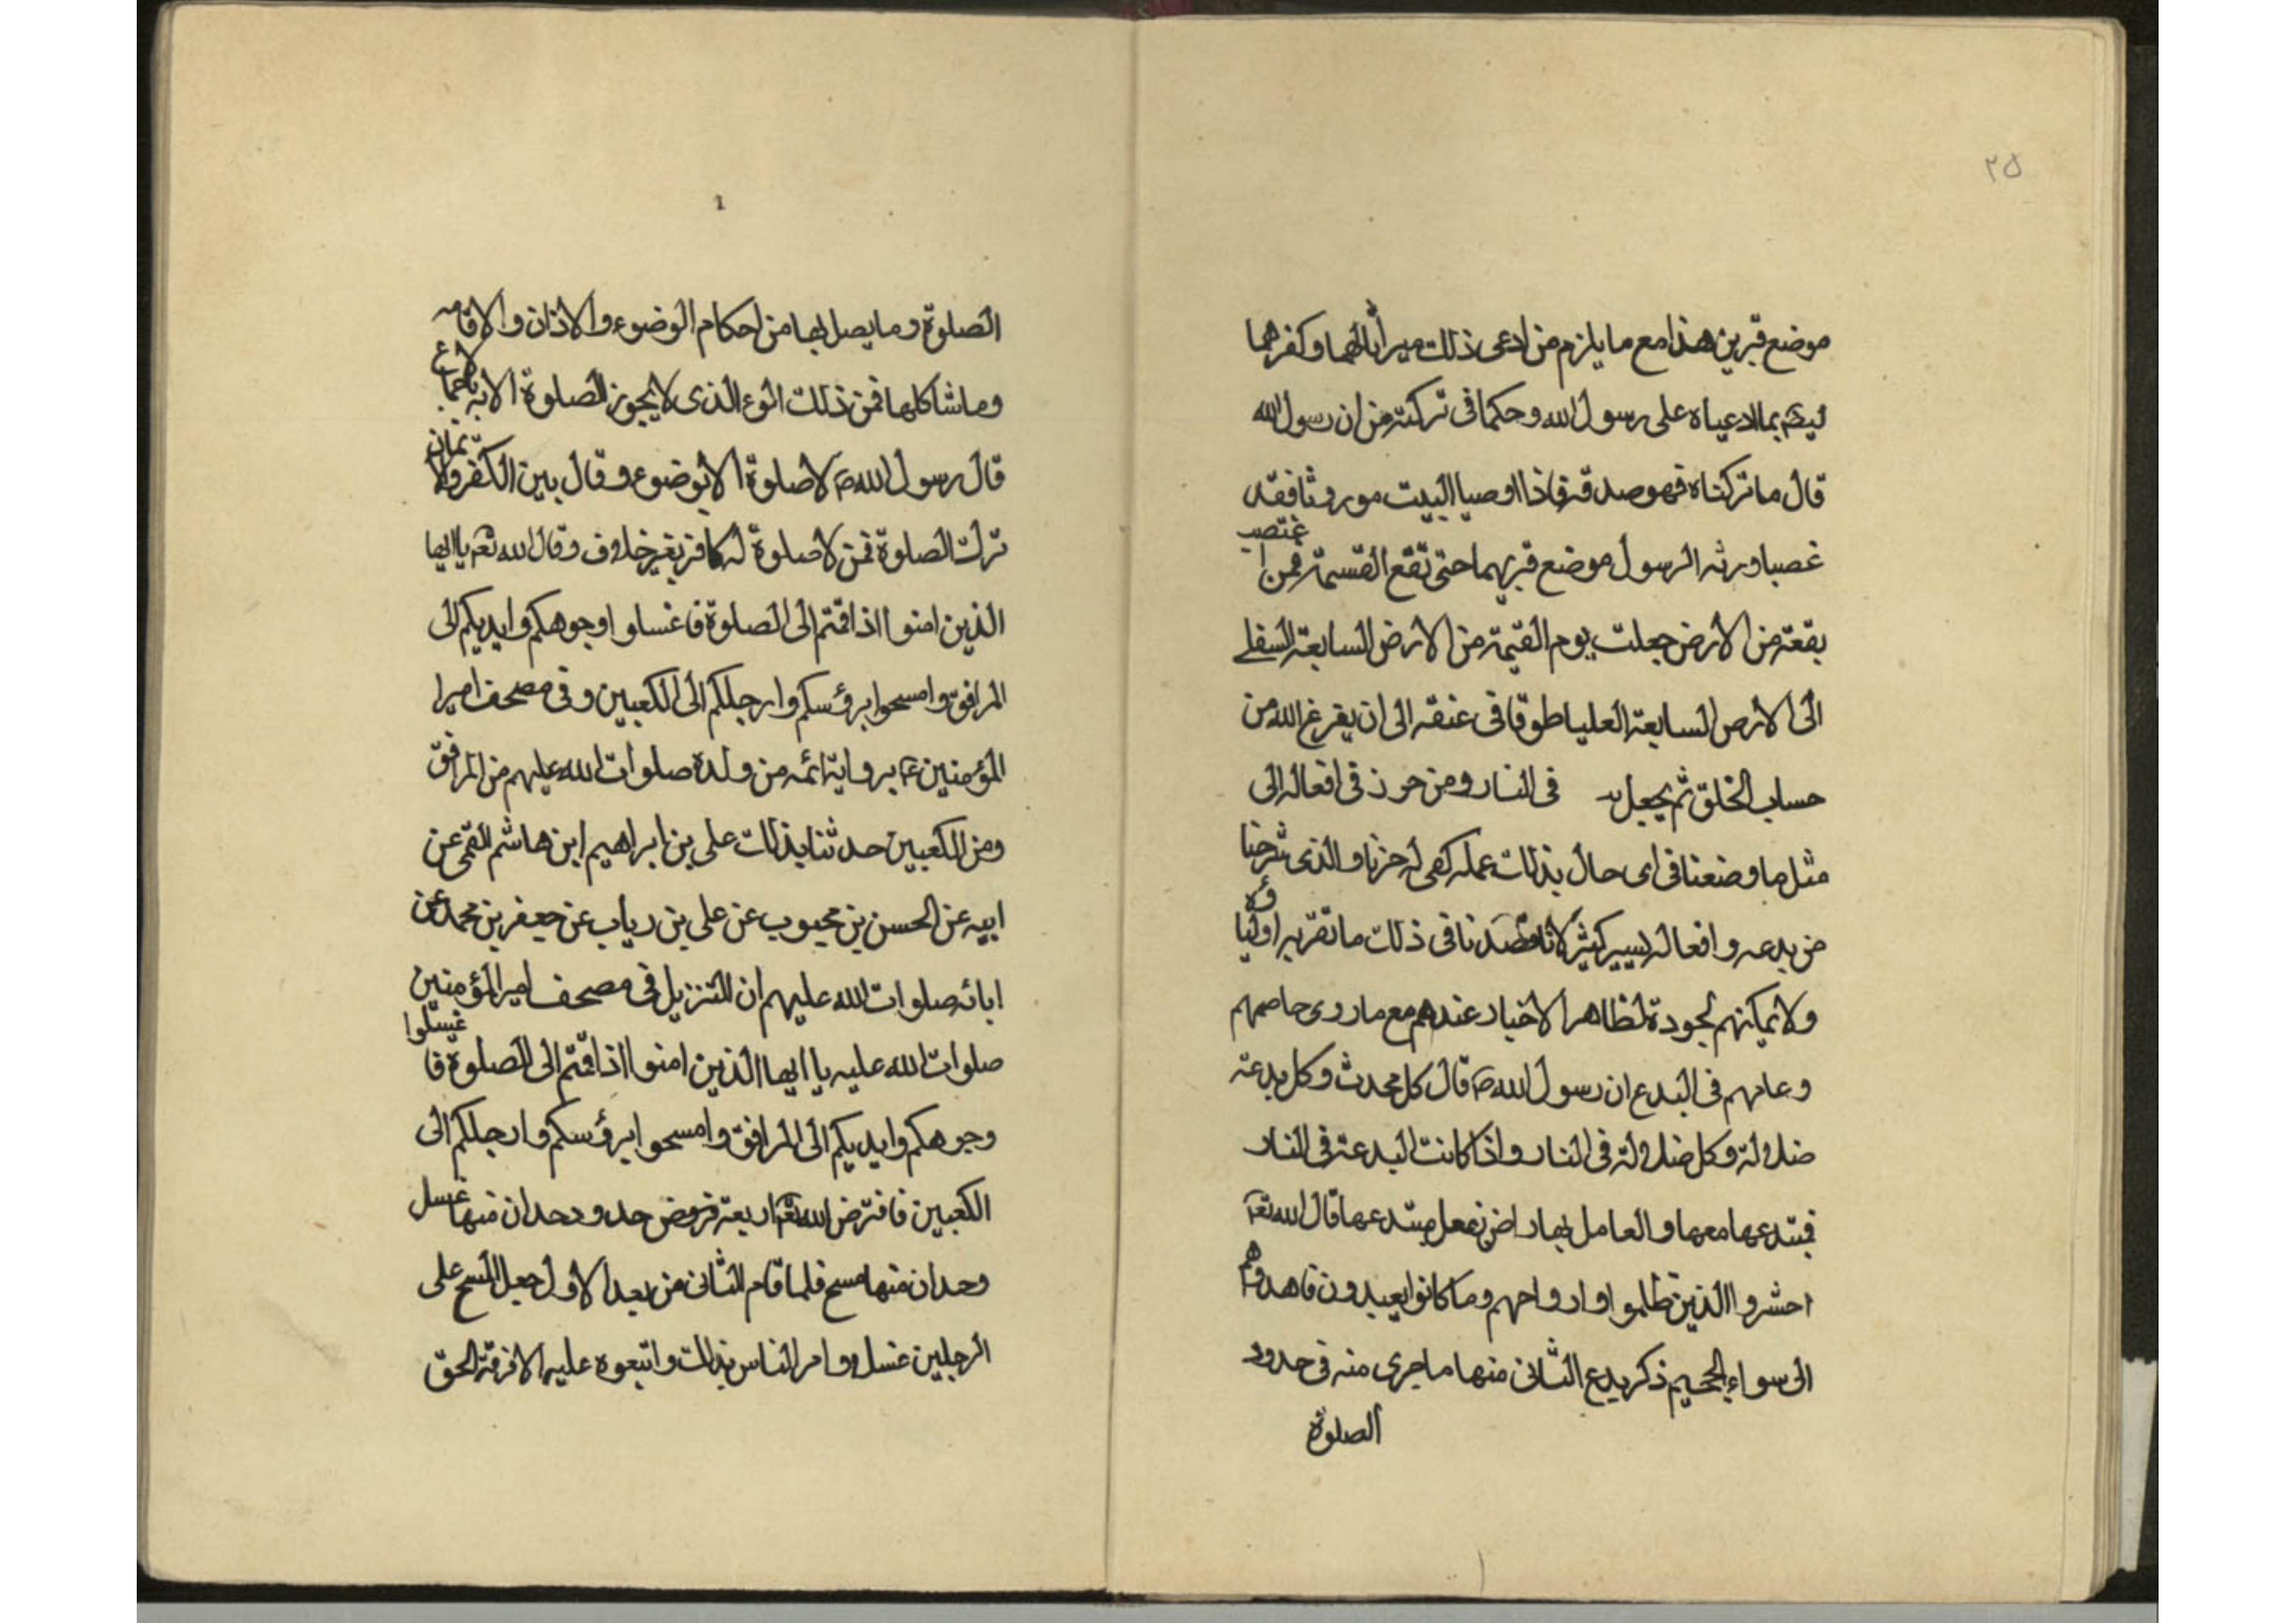 ٢٥
موضع قبرين هذا مع ما يلزم من ادعى ذلك ميراثا لهما وكفرهما
بما ادعياه على رسول الله وحكما في تركته من ان رسول الله
قال ما تركناه فهو صدقة فاذا اوصيا البيت موروثا فقد
غصبا ورثه الرسول موضع قبريهما حتى تقع القسمة فمن اغتصب
بقعة من الارض جعلت يوم القيمة من الارض السابعة السفلى
الى الارض السابعة العليا طوقا في عنقه الى ان يفرغ الله من
حساب الخلق ثم يجعل في النار ومن حرز في افعاله الى
مثل ما وضعنا في اى حال بذلك عمله كفى له خزيا والذى شرحنا
من بدعه وافعاله يسير كثير لانا قصدنا في ذلك ما تقر به اولياؤه
ولا يمكنهم لجودة لظاهر الاخبار عندهم مع ما روى خاصهم
وعامهم في البدع ان رسول الله ص قال كل محدث وكل بدعة
ضلالة وكل ضلالة في النار واذا كانت البدعة في النار
فمبتدعها معها والعامل بها راض بفعل مبتدعها قال الله تعا
احشروا الذين ظلموا وازواجهم وما كانوا يعبدون فاهدوهم
الى سواء الجحيم ذكر بدع الثانى منها ما جرى منه في حدود
الصلوة
الصلوة وما يصل بها من احكام الوضوء والاذان والاقامه
وما شاكلها فمن ذلك الوء الذى لا يجوز الصلوة الا به باجماع
قال رسول الله ص لا صلوة الا بوضوء وقال بين الكفر والايمان
ترك الصلوة فمن لا صلوة له كافر بغير خلاف وقال الله تعا يا ايها
الذين امنوا اذا قمتم الى الصلوة فاغسلوا وجوهكم وايديكم الى
المرافق وامسحوا برؤسكم وارجلكم الى الكعبين وفى مصحف امير ا
المؤمنين ع برواية ائمه من ولده صلوات الله عليهم من المرافق
ومن الكعبين حدثنا بذلك على بن ابراهيم ابن هاشم القمى عن
ابيه عن الحسن بن محبوب عن على بن رياب عن جعفر بن محمد عن
ابائه صلوات الله عليهم ان التنزيل في مصحف امير المؤمنين
صلوات الله عليه يا ايها الذين امنوا اذا قمتم الى الصلوة فاغسلوا
وجوهكم وايديكم الى المرافق وامسحوا برؤسكم وارجلكم الى
الكعبين فافترض الله تعا اربعة فروض حدود حدان منها غسل
وحدان منها مسح فلما قام الثانى من بعد الاول جعل المسح على
الرجلين غسلا وامر الناس بذلك واتبعوه عليه الا فرقة الحق